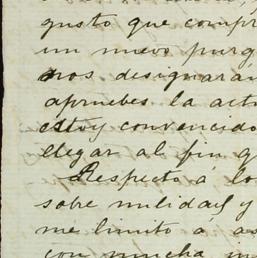 gusto que compr
un nuevo purg
nos designarán
apruebes la acti
estoy convencido
llegar al fin q
Respecto á lo
sobre nulidad y
me limito a as
con mucha in